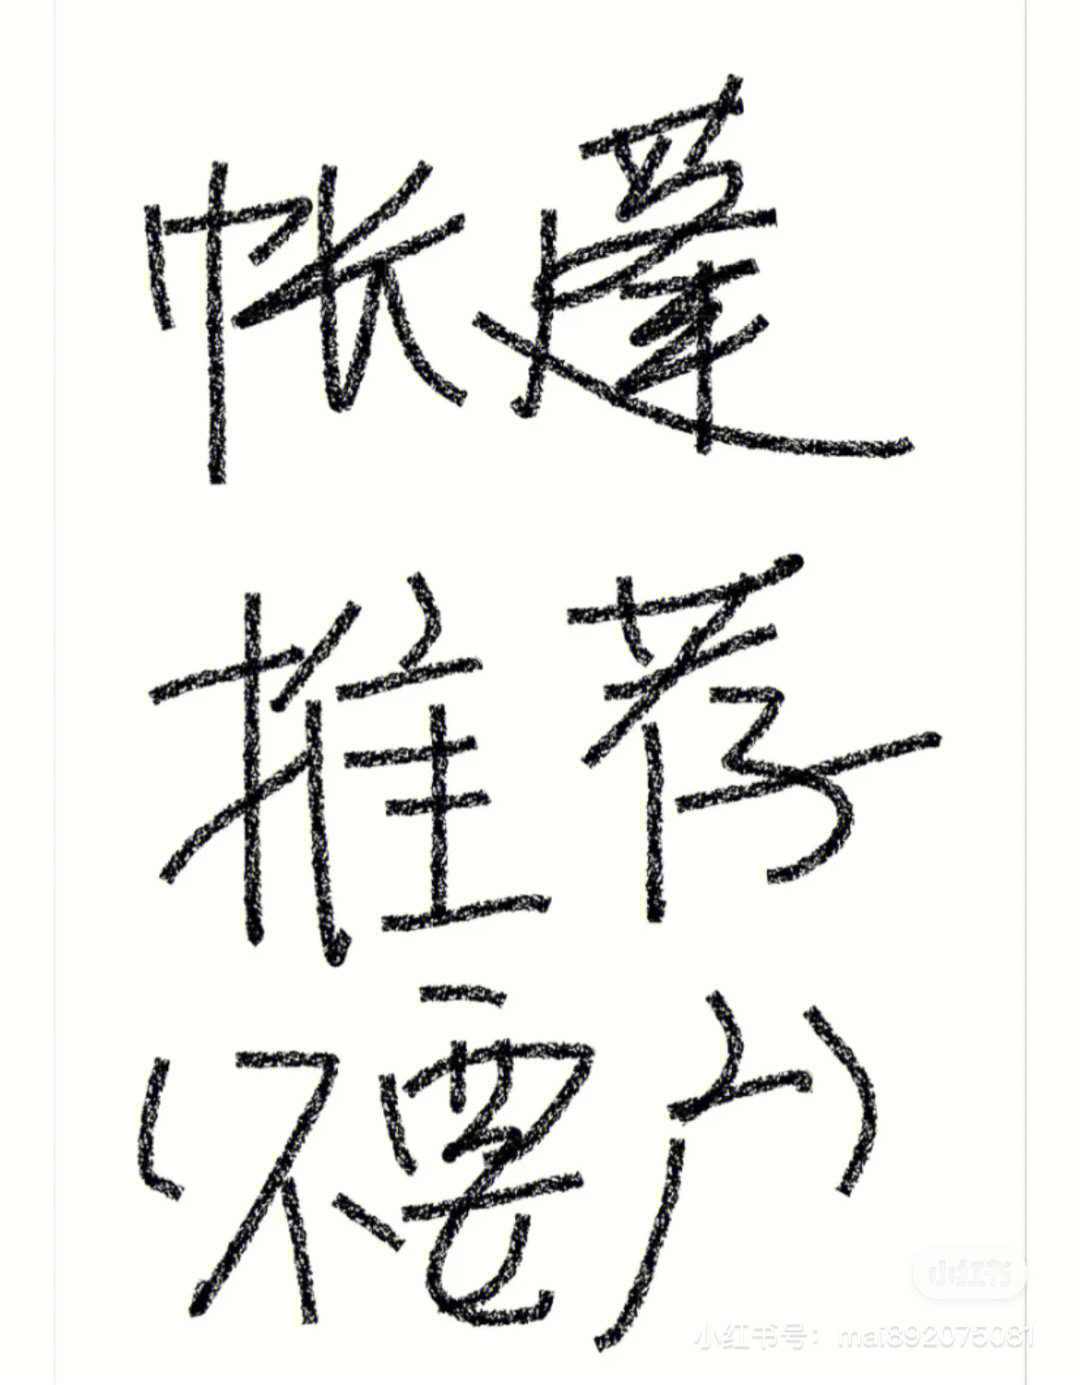 帐蓬
推荐
(不要广)
小红书
小红书号：mai892075081